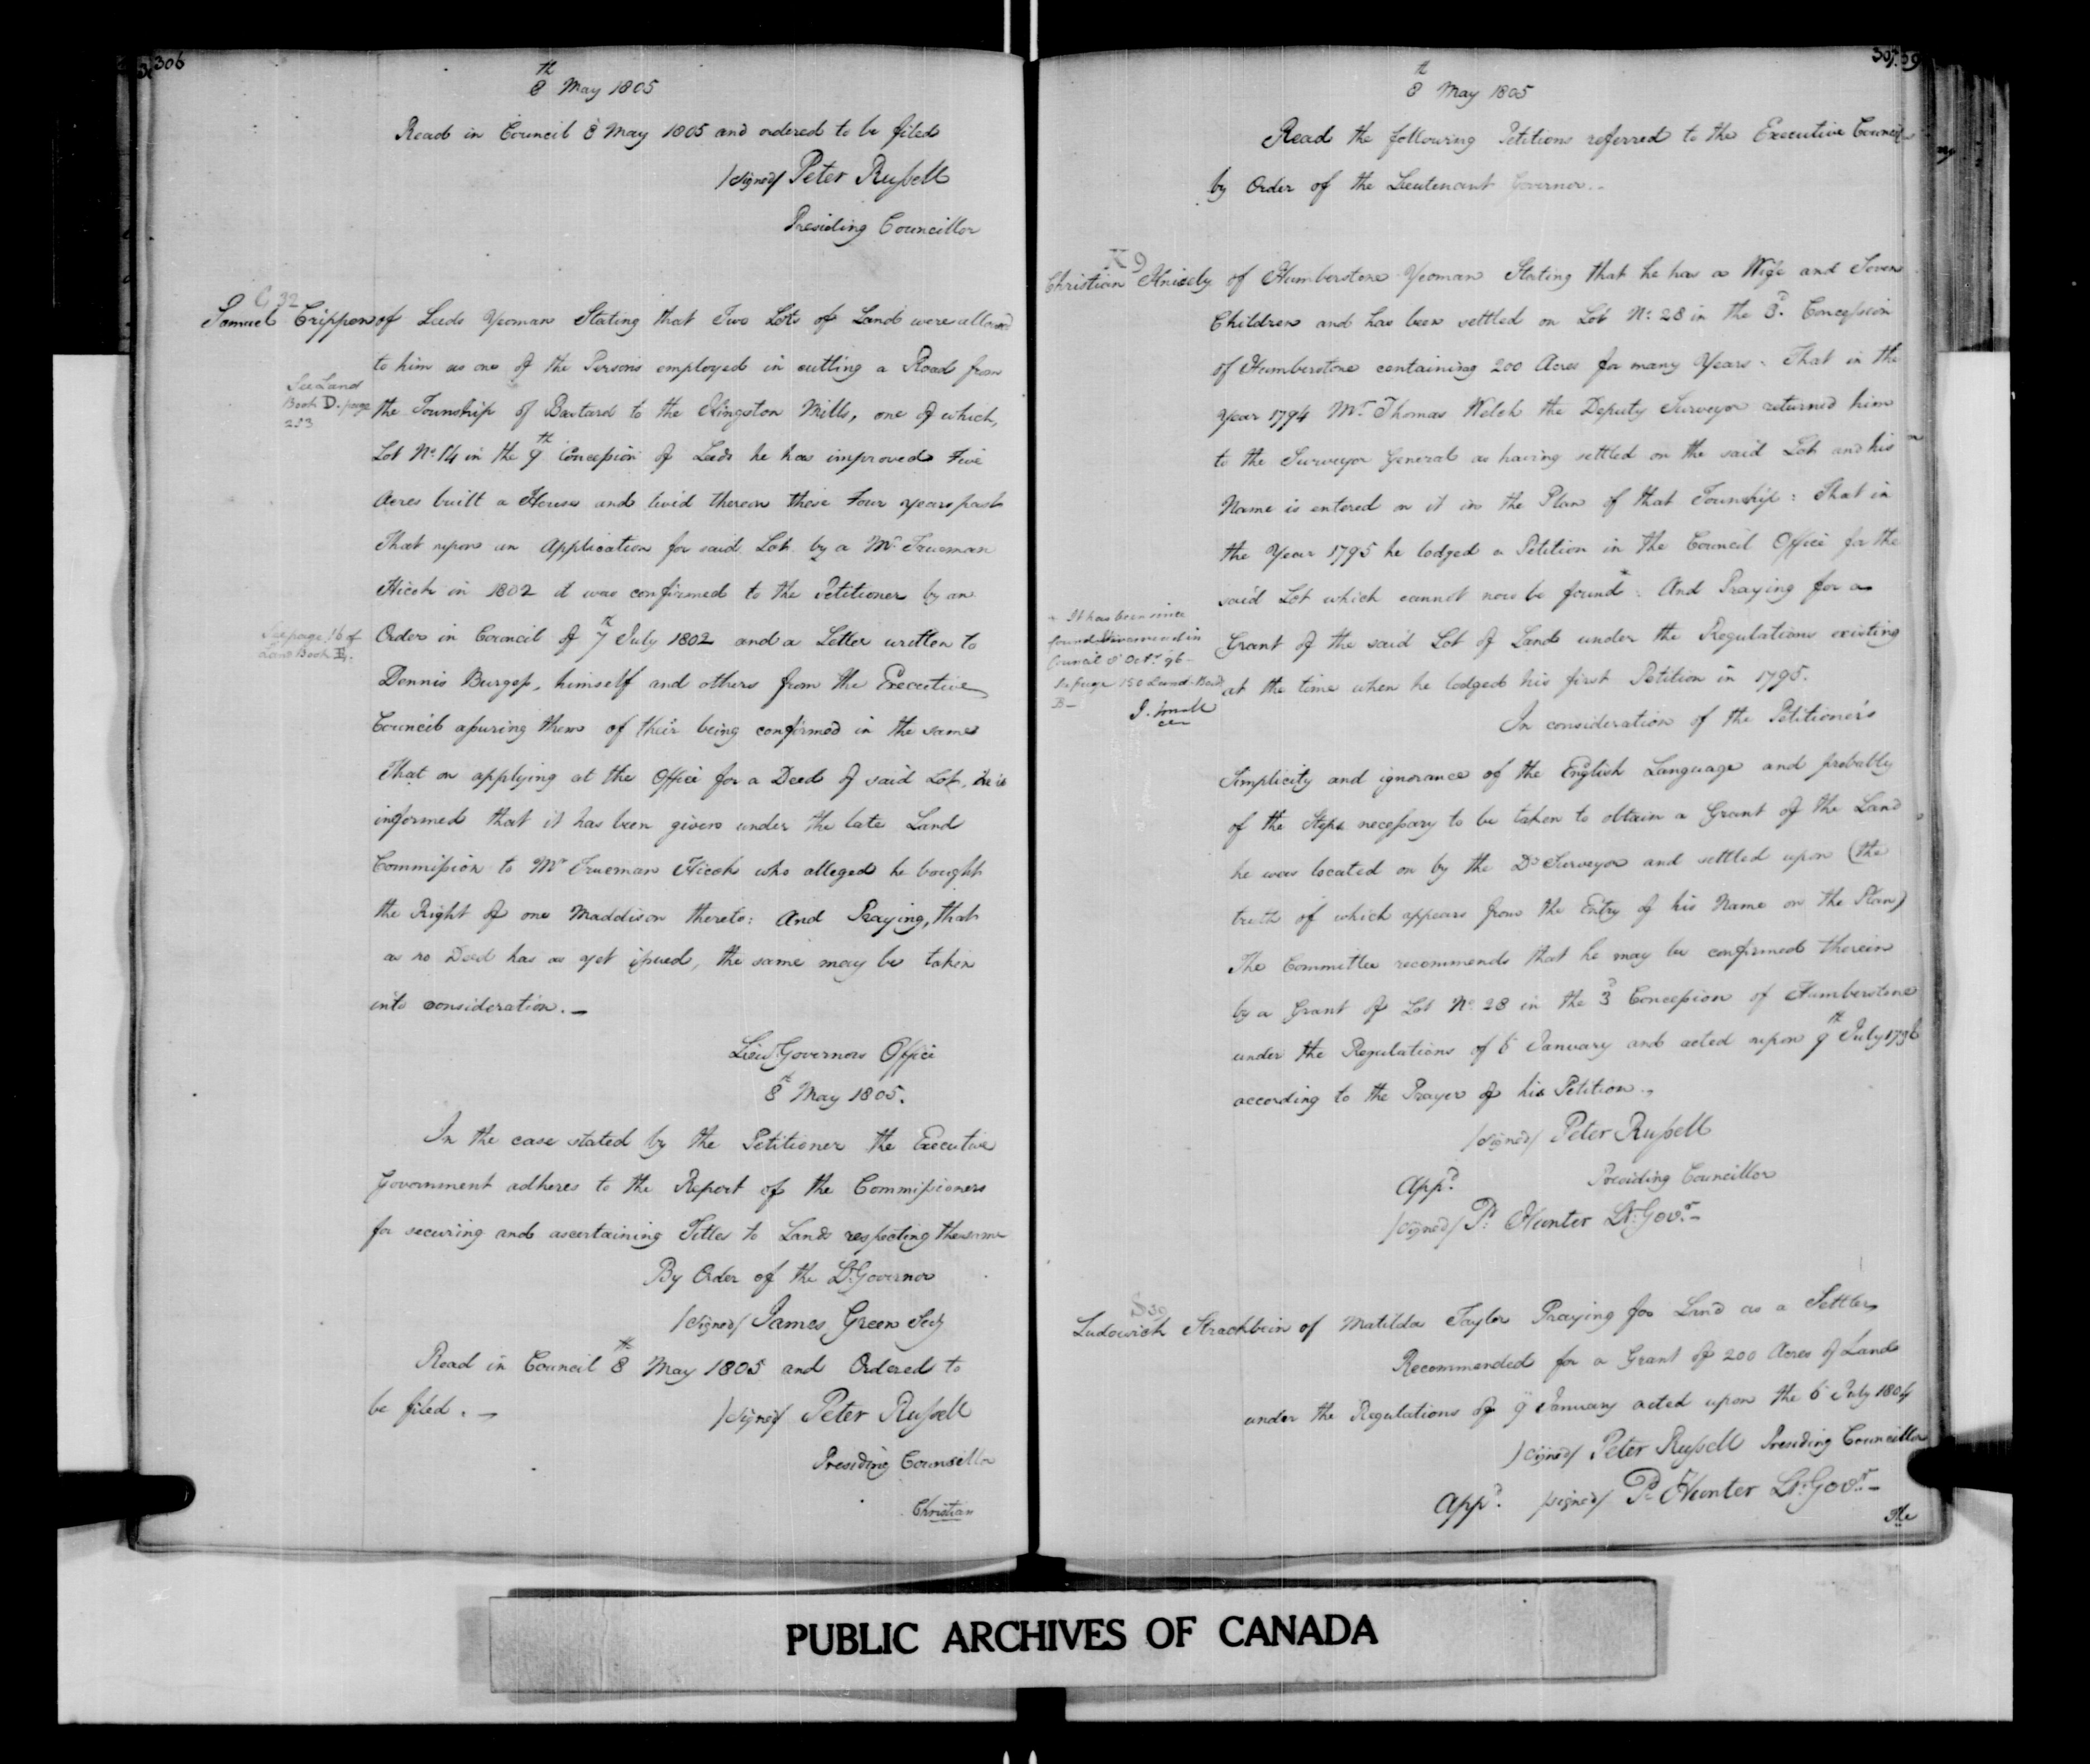 306
8th May 1805
Read in Council 8 May 1805 and ordered to be filed
/signed/ Peter Russell
Presiding Councillor
C 32
Samuel Crippen of Leeds Yeoman Stating that Two Lots of Land were allowed
to him as one of the Persons employed in cutting a Road from
See Land
Book D. page
253
the Township of Bastard to the Kingston Mills, one of which,
Lot No. 14 in the 9th Concession of Leeds he has improved Five
Acres built a House and livid thereon these Four years past
That upon an Application for said Lot by a Mr. Trueman
Hicok in 1802 it was confirmed to the Petitioner by an
See page 16 of
Land Book E.
Order in Council of 7th July 1802 and a Letter written to
Dennis Burgess, himself and others from the Executive
Council assuring them of their being confirmed in the same
That on applying at the Office for a Deed of said Lot, he is
informed that it has been given under the late Land
Commission to Mr Trueman Hicok who alleged he bought
the Right of one Maddison thereto: And Praying, that
as no Deed has as yet issued, the same may be taken
into consideration. —
Lieut Governors Office
8th May 1805.
In the case stated by the Petitioner the Executive
Government adheres to the Report of the Commissioners
for securing and ascertaining Titles to Lands respecting the same
By Order of the Lt. Governor
/signed/ James Green Secy
Read in Council 8th May 1805 and Ordered to
be filed. —
/signed/ Peter Russell
Presiding Councillor
Christian
307.
8th May 1805
Read the following Petitions referred to the Executive Council
by Order of the Lieutenant Governor. —
K 9
Christian Knisely of Humberstone Yeoman Stating that he has a Wife and Seven
Children and has been settled on Lot No. 28 in the 3d. Concession
of Humberstone containing 200 Acres for many Years. That in the
Year 1794 Mr. Thomas Welch the Deputy Surveyor returned him
to the Surveyor General as having settled on the said Lot and his
Name is entered on it in the Plan of that Township: That in
the Year 1795 he lodged a Petition in the Council Office for the
said Lot which cannot now be found: And Praying for a
+ It has been since
found & is answered in
Council 8 Octr. 96 –
page 150 Land Book
B –
J. Small
Grant of the said Lot of Land under the Regulations existing
at the time when he lodged his first Petition in 1795.
In consideration of the Petitioner's
Simplicity and ignorance of the English Language and probably
of the Steps necessary to be taken to obtain a Grant of the Land
he was located on by the Dy Surveyor and settled upon (the
truth of which appears from the Entry of his Name on the Plan)
The Committee recommends that he may be confirmed therein
by a Grant of Lot No. 28 in the 3d Concession of Humberstone
under the Regulations of 6 January and acted upon 9th July 1796
according to the Prayer of his Petition.,
/signed/ Peter Russell
Presiding Councillor
Appd.
/signed/ P. Hunter Lt. Govr. –
S 39
Ludowick Strachbein of Matilda Taylor Praying for Land as a Settler
Recommended for a Grant of 200 Acres of Land
under the Regulations of 9 January acted upon the 6 July 1804
/signed/ Peter Russell Presiding Councillor
Appd. /signed/ P. Hunter Lt. Govr. –
The
PUBLIC ARCHIVES OF CANADA